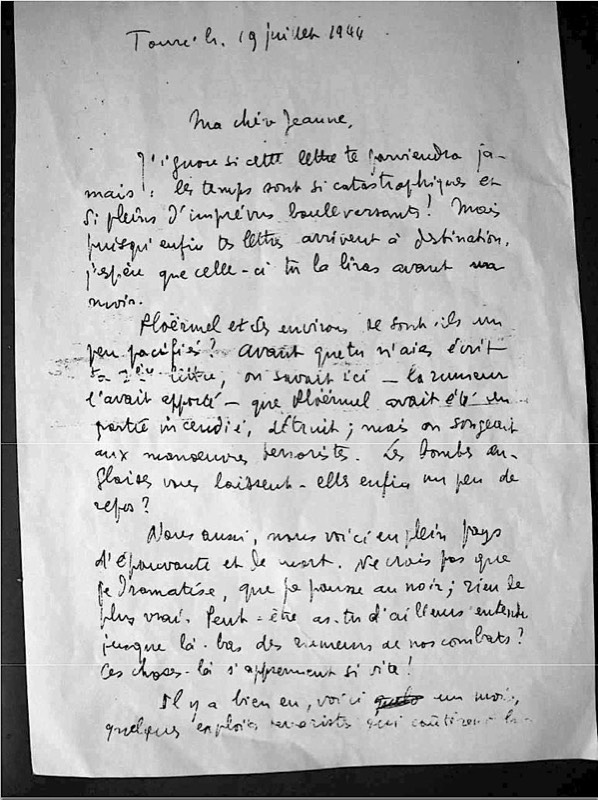 19 juillet 1944
Ma chère Jeanne,
J'ignore si cette lettre te parviendra ja-
mais : les temps sont si catastrophiques et
si pleins d'imprévus bouleversants! Mais
puisqu'enfin tes lettres arrivent à destination,
j'espère que celle-ci tu la liras avant un
mois.
Ploërmel et ses environs se sont-ils un
peu pacifiés? Avant que tu n'aies écrit
ta lettre, on savait ici — la rumeur
l'avait apporté — que Ploërmel avait été en
partie incendié, détruit; mais on songeait
aux manoeuvres terroristes. Les bombes an-
glaises vous laissent-elles enfin un peu de
repos?
Nous aussi, nous voici en plein pays
d'épouvante et de mort. Ne crois pas que
je dramatise, que je pousse au noir; rien de
plus vrai. Peut-être as-tu d'ailleurs entendu
jusque là-bas des rumeurs de nos combats?
Ces choses-là s'apprennent si vite!
Il y a bien eu, voici un mois,
quelques exploits terroristes qui coûtèrent la